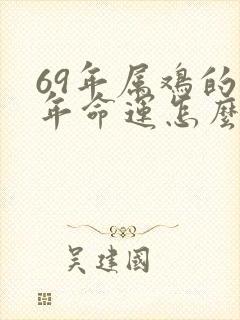 69年属鸡的
年命運怎麼
吴建國